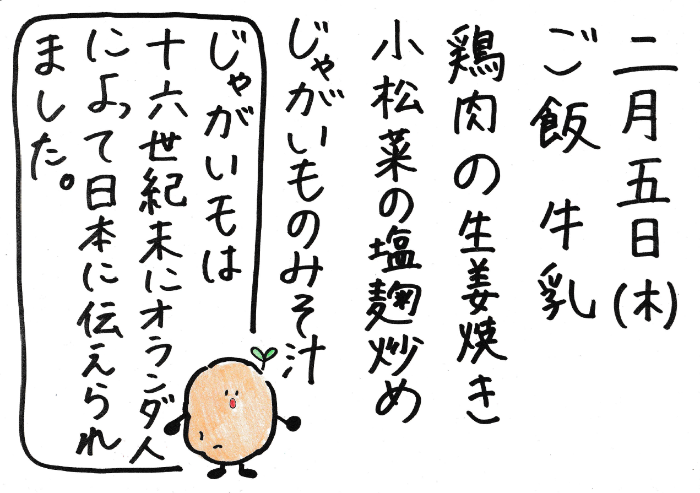 二月五日(木)
ご飯 牛乳
鶏肉の生姜焼き
小松菜の塩麹炒め
じゃがいものみそ汁
じゃがいもは
十六世紀末にオランダ人
によって日本に伝えられ
ました。